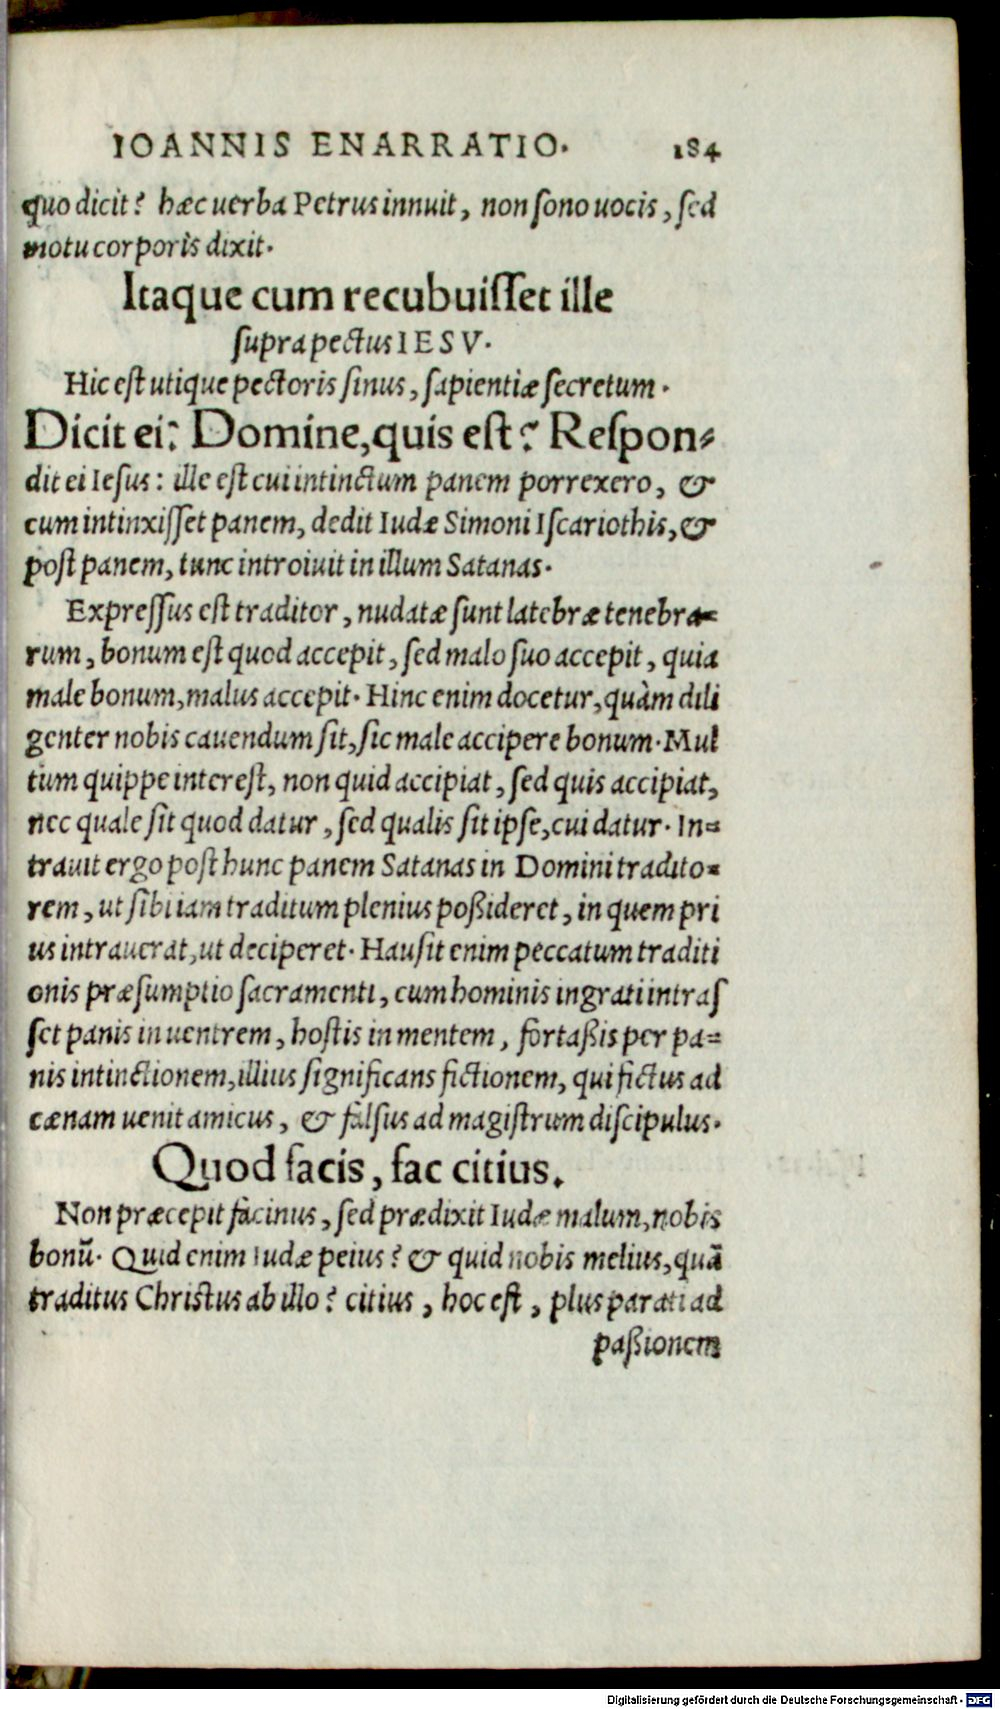 IOANNIS ENARRATIO. 184
quo dicit? hæc uerba Petrus innuit, non sono uocis, sed
motu corporis dixit.
Itaque cum recubuisset ille
supra pectus IESV.
Hic est utique pectoris sinus, sapientiæ secretum.
Dicit ei: Domine, quis est? Respon-
dit ei Iesus: ille est cui intinctum panem porrexero, &
cum intinxisset panem, dedit Iudæ Simoni Iscariothis, &
post panem, tunc introiuit in illum Satanas.
Expressus est traditor, nudatæ sunt latebræ tenebra-
rum, bonum est quod accepit, sed malo suo accepit, quia
male bonum, malus accepit. Hinc enim docetur, quàm dili
genter nobis cauendum sit, sic male accipere bonum. Mul
tum quippe interest, non quid accipiat, sed quis accipiat,
nec quale sit quod datur, sed qualis sit ipse, cui datur. In-
trauit ergo post hunc panem Satanas in Domini tradito-
rem, ut sibi iam traditum plenius poßideret, in quem pri
us intrauerat, ut deciperet. Hausit enim peccatum traditi
onis præsumptio sacramenti, cum hominis ingrati intras
set panis in uentrem, hostis in mentem, fortaßis per pa-
nis intinctionem, illius significans fictionem, qui fictus ad
cænam uenit amicus, & falsus ad magistrum discipulus.
Quod facis, fac citius.
Non præcepit facinus, sed prædixit Iudæ malum, nobis
bonũ. Quid enim Iudæ peius? & quid nobis melius, quã
traditus Christus ab illo? citius, hoc est, plus parati ad
paßionem
Digitalisierung gefördert durch die Deutsche Forschungsgemeinschaft - DFG